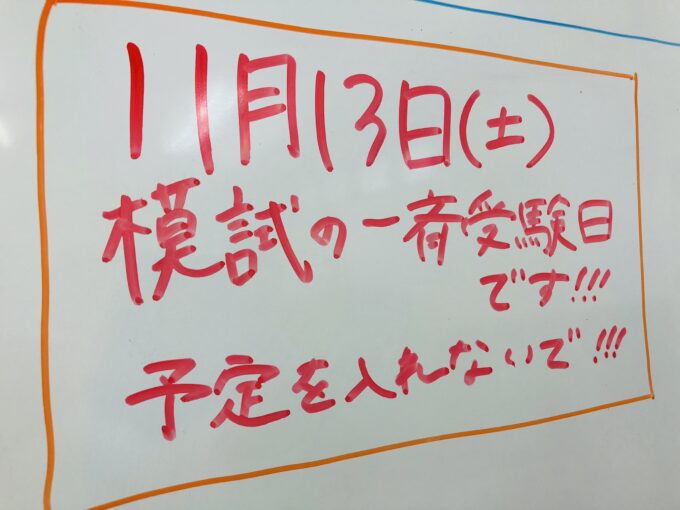 11月13日(土)
模試の一斉受験日
です!!!
予定を入れないで!!!